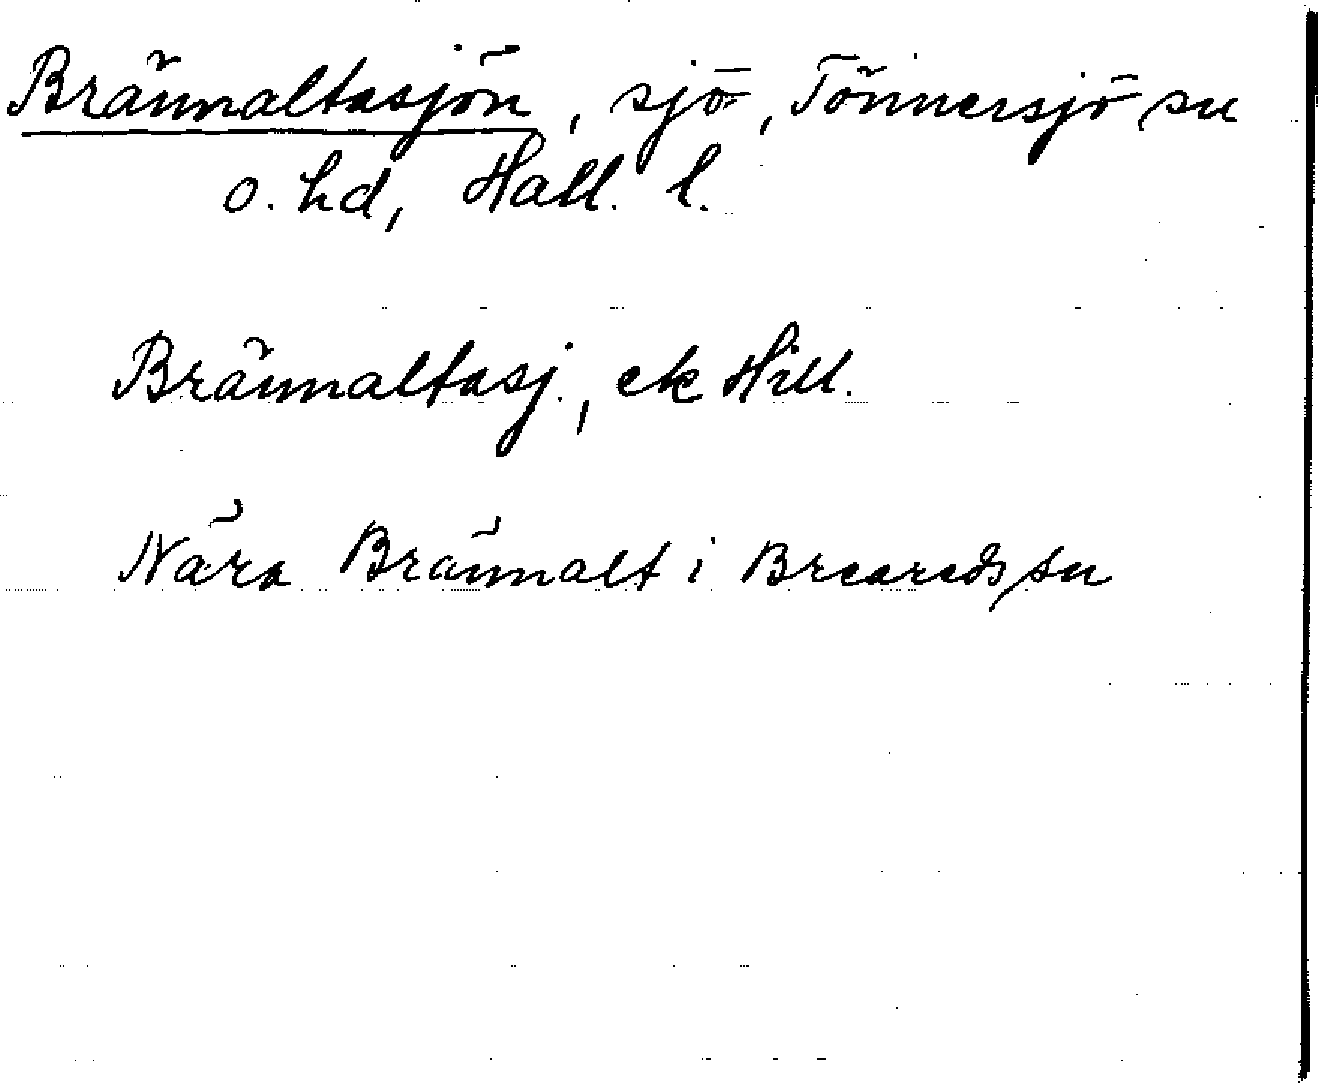 Brännaltasjön, sjö, Tönnersjö sn
o. hd, Hall. l.
Brännaltasj., ek Hill.
Nära Brännalt i Breareds sn